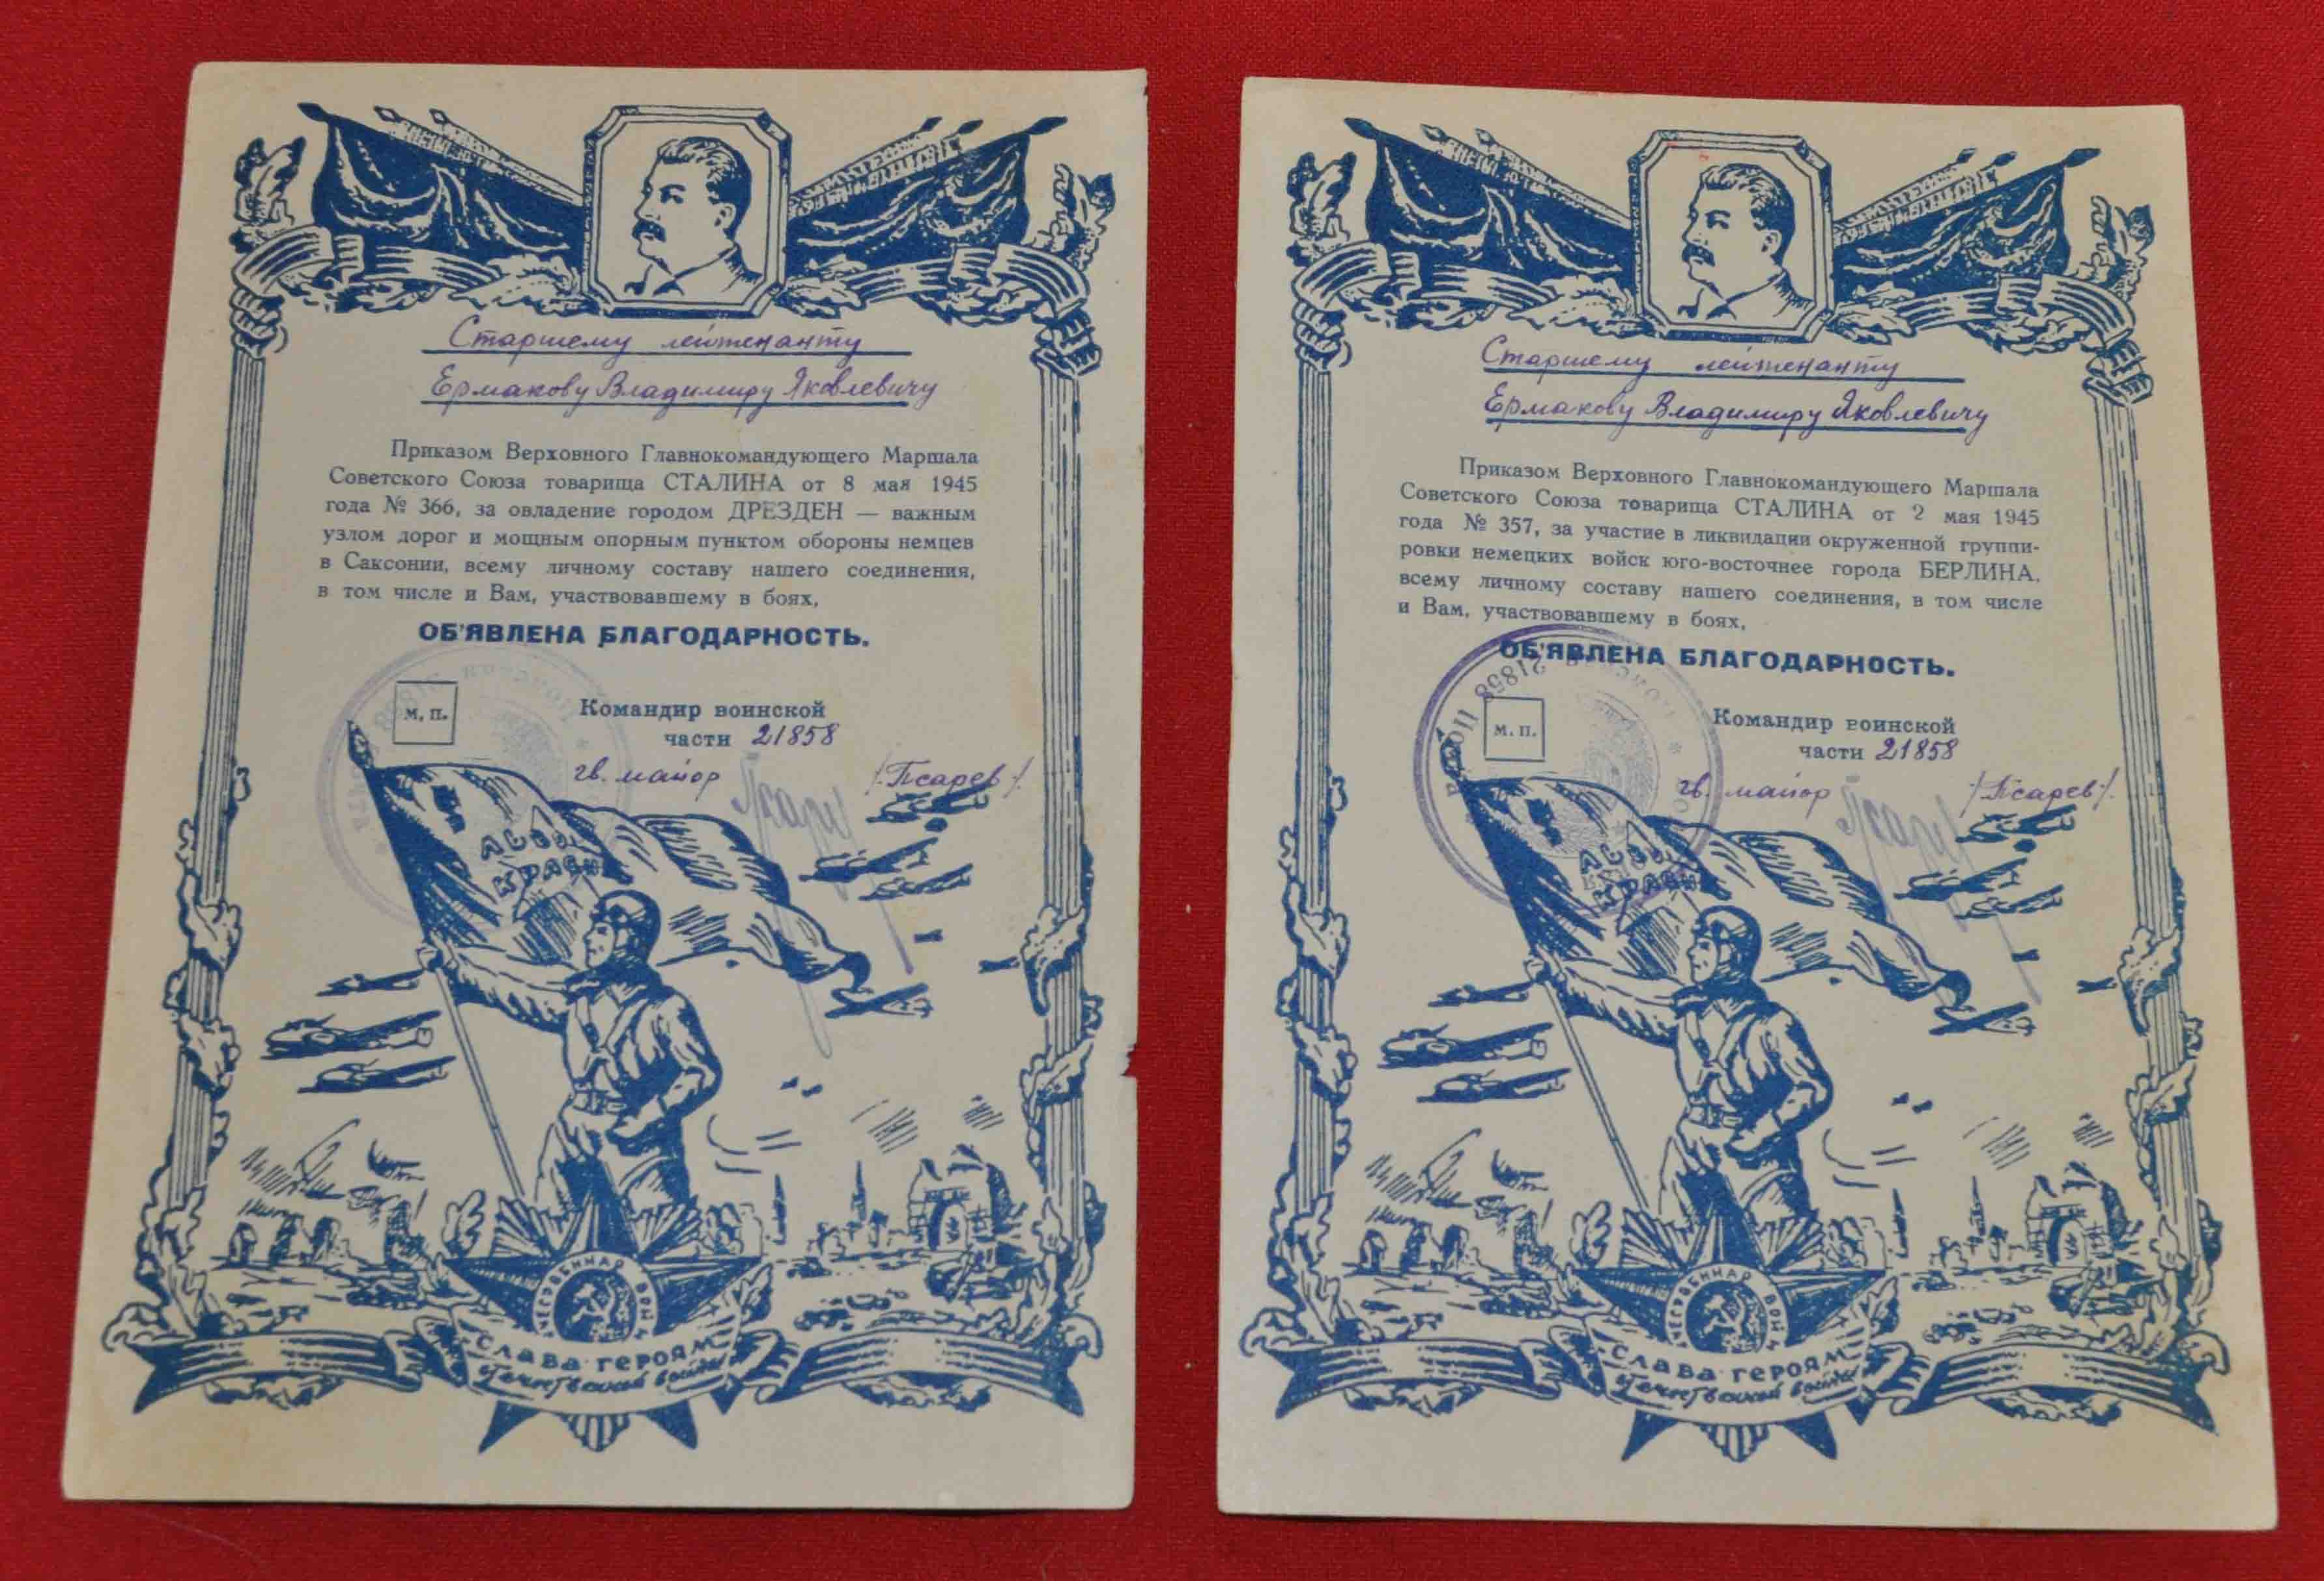 Старшему лейтенанту
Ермакову Владимиру Яковлевичу
Приказом Верховного Главнокомандующего Маршала
Советского Союза товарища СТАЛИНА от 8 мая 1945
года № 366, за овладение городом ДРЕЗДЕН — важным
узлом дорог и мощным опорным пунктом обороны немцев
в Саксонии, всему личному составу нашего соединения,
в том числе и Вам, участвовавшему в боях,
ОБ'ЯВЛЕНА БЛАГОДАРНОСТЬ.
м. п.
Командир воинской
части 21858
гв. майор /Псарев/
СЛАВА ГЕРОЯМ
Отечественной войны
Старшему лейтенанту
Ермакову Владимиру Яковлевичу
Приказом Верховного Главнокомандующего Маршала
Советского Союза товарища СТАЛИНА от 2 мая 1945
года № 357, за участие в ликвидации окруженной группи-
ровки немецких войск юго-восточнее города БЕРЛИНА,
всему личному составу нашего соединения, в том числе
и Вам, участвовавшему в боях,
ОБ'ЯВЛЕНА БЛАГОДАРНОСТЬ.
21858
м. п.
Командир воинской
части 21858
гв. майор /Псарев/
СЛАВА ГЕРОЯМ
Отечественной войны